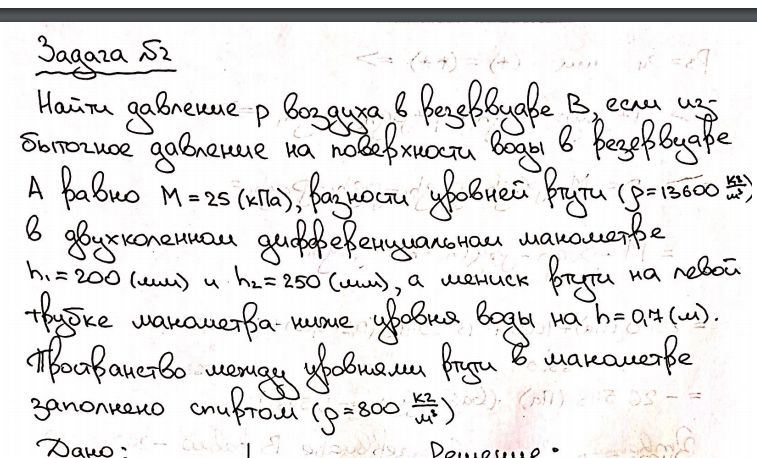 Задача №2
Найти давление p воздуха в резервуаре B, если из-
быточное давление на поверхности воды в резервуаре
A равно M = 25 (кПа), разности уровней ртути (ρ=13600 кг/м³)
в двухколенном дифференциальном манометре
h₁ = 200 (мм) и h₂ = 250 (мм), а мениск ртути на левой
трубке манометра ниже уровня воды на h = 0,7 (м).
Пространство между уровнями ртути в манометре
заполнено спиртом (ρ = 800 кг/м³)
Дано: Решение: